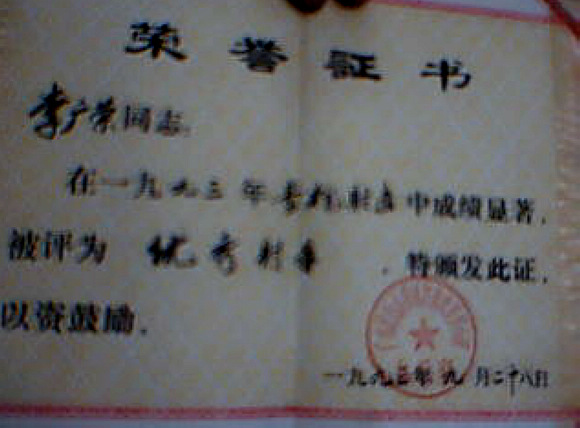 荣誉证书
李广荣同志:
在一九九三年 中成绩显著,
被评为 优秀 ,特颁发此证,
以资鼓励.
一九九三年九月二十八日